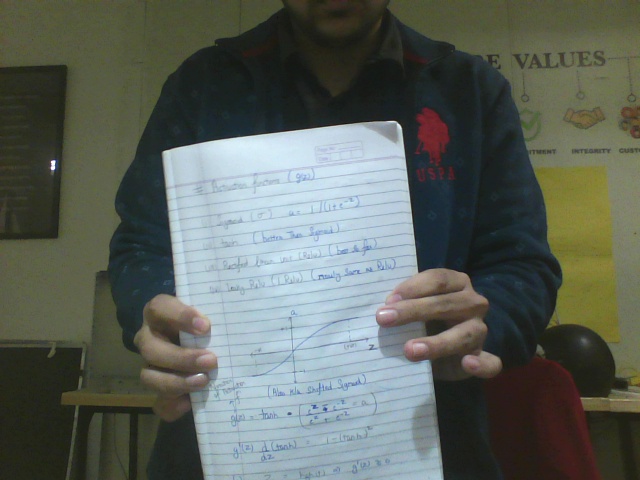 E VALUES
MITMENT INTEGRITY CUSTO
USPA
= Activation functions (g(z))
i) Sigmoid (σ) a = 1/(1+e^-z)
ii) tanh (better than Sigmoid)
iii) Rectified linear unit (Relu) (best so far)
iv) Leaky Relu (L Relu) (mostly same as Relu)
a
z
(Also k/a shifted Sigmoid)
g(z) = tanh = (e^z - e^-z / e^z + e^-z) = a
g'(z) d/dz (tanh) = 1 - (tanh)^2